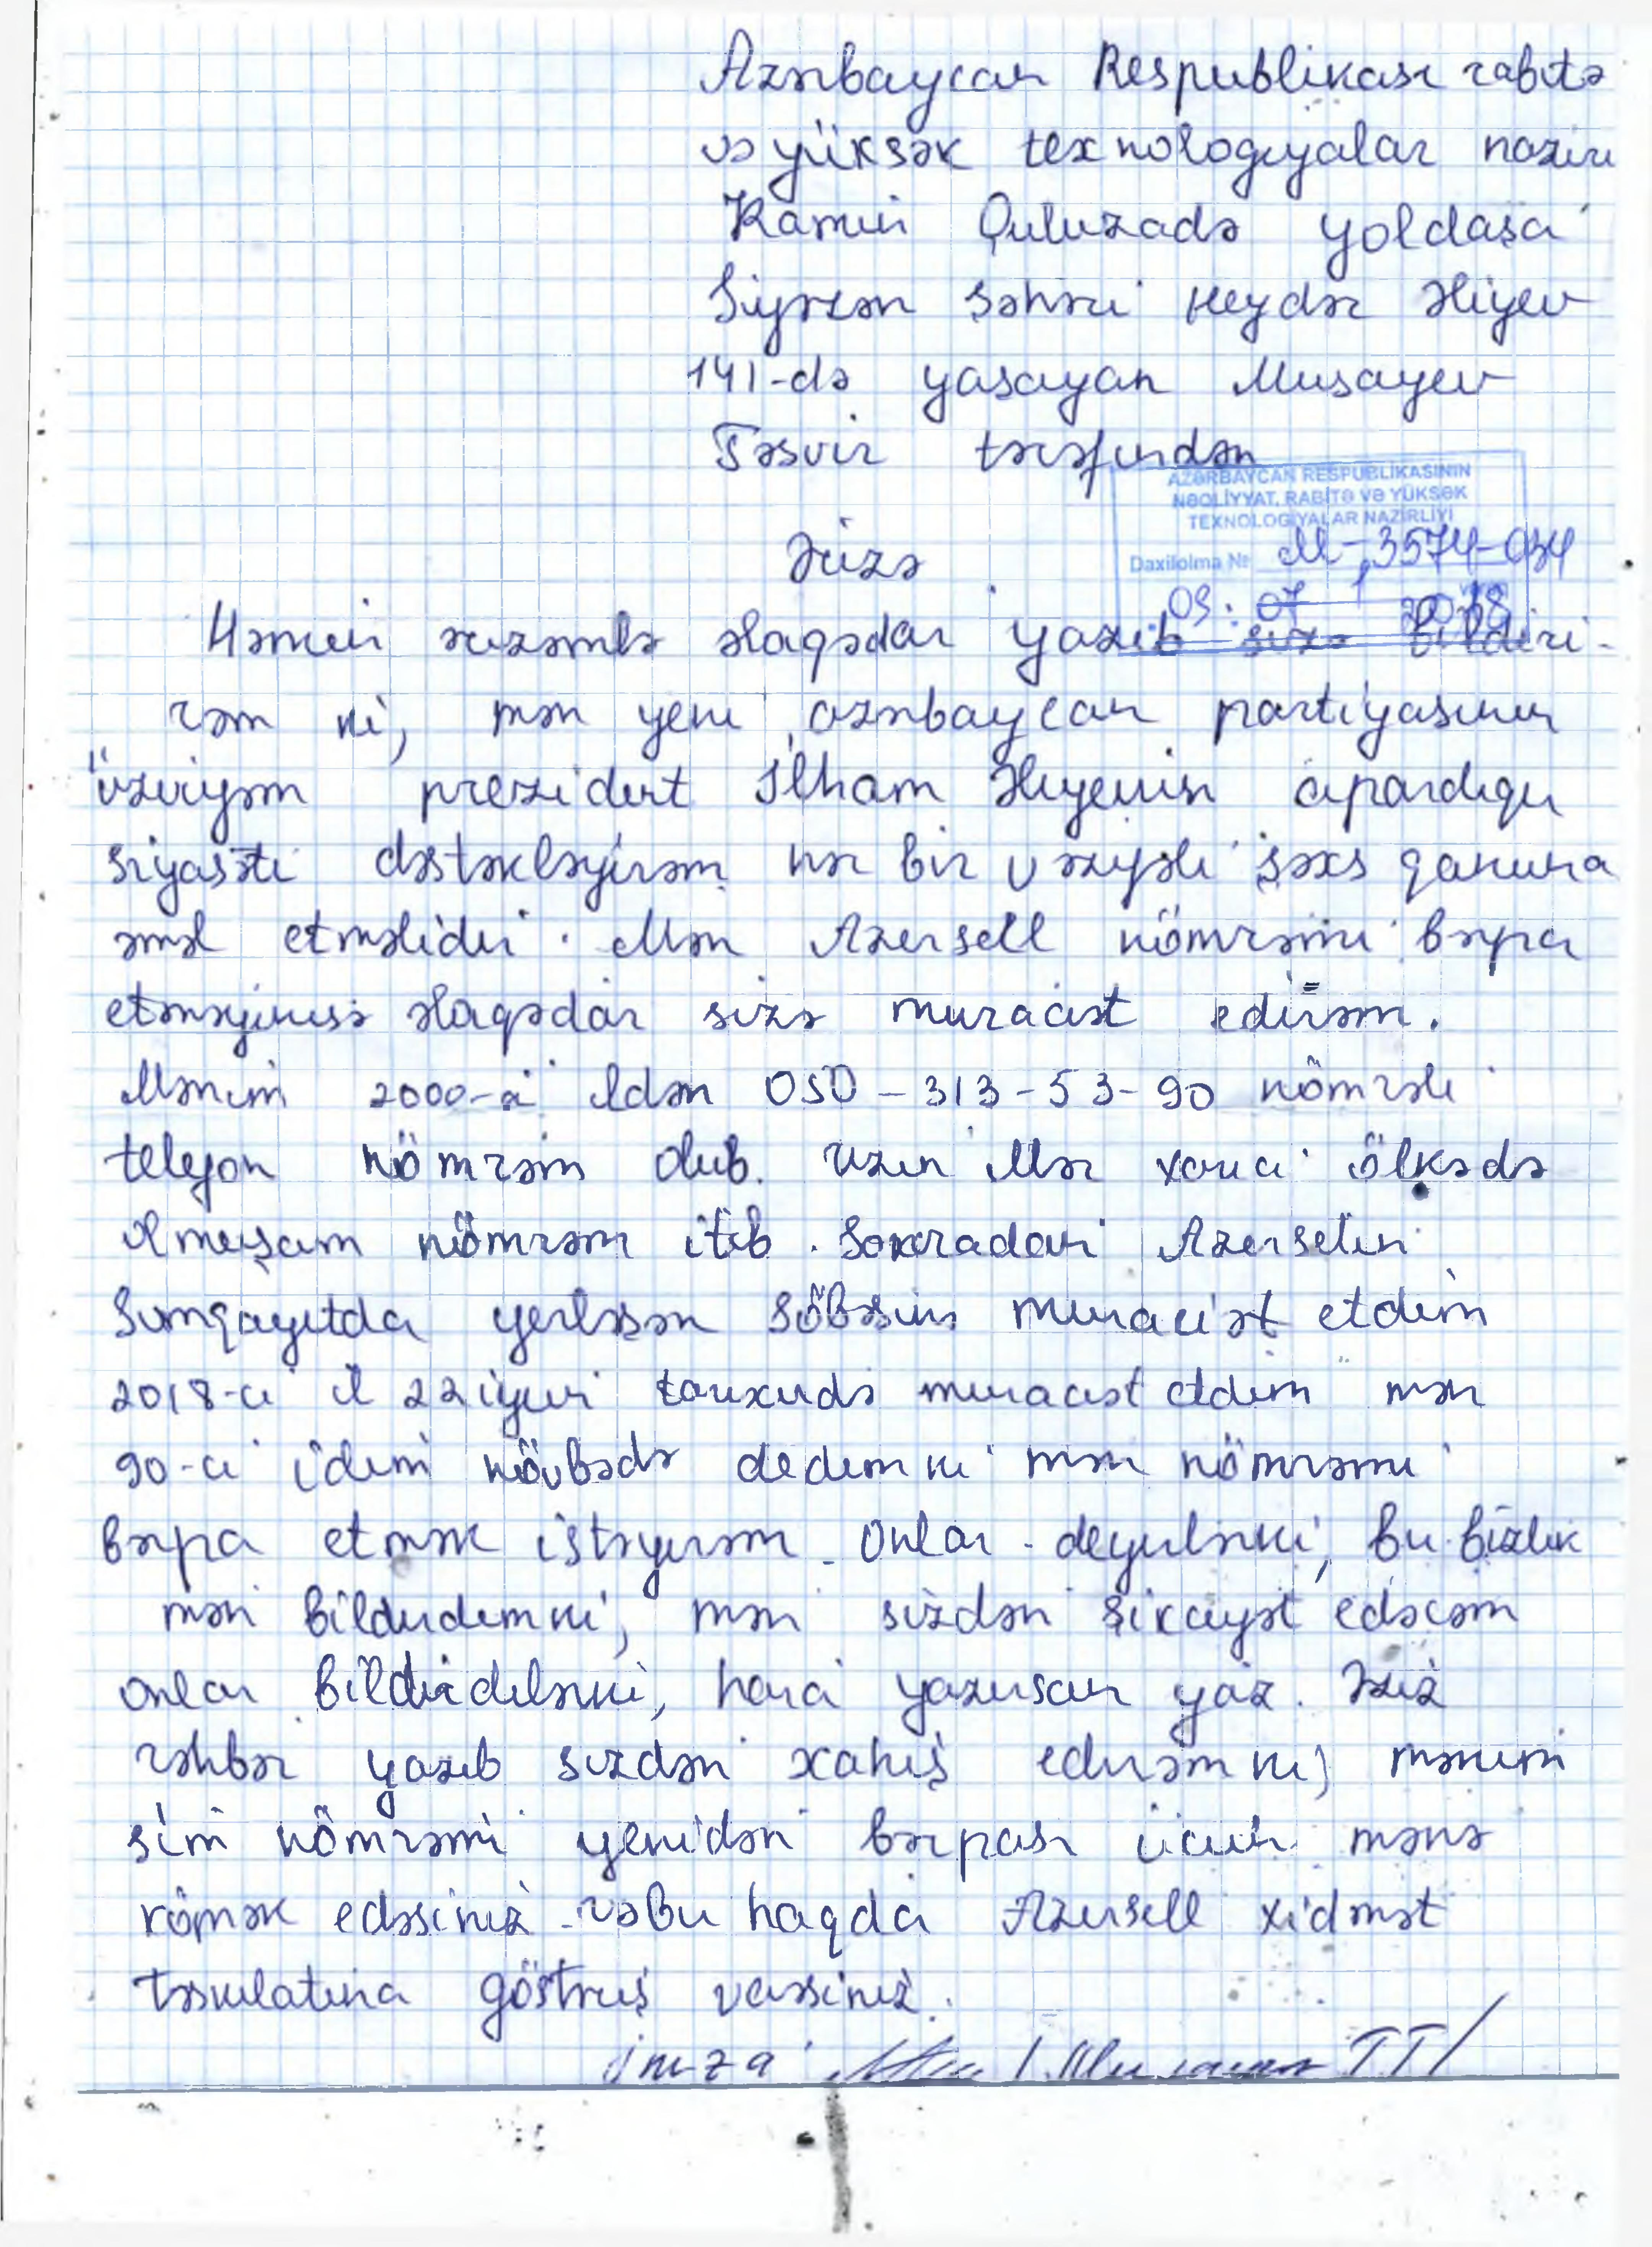 Azərbaycan Respublikası rabitə
və yüksək texnologiyalar naziri
Ramin Quluzadə yoldaşa
Siyəzən şəhəri Heydər Əliyev
141-də yaşayan Musayev
Təsvir tərəfindən
AZƏRBAYCAN RESPUBLİKASININ
NƏQLİYYAT, RABİTƏ VƏ YÜKSƏK
TEXNOLOGİYALAR NAZİRLİYİ
Daxilolma № M-3574-034
09.07 2018
Ərizə
Həmin ərizəmlə əlaqədar yazıb sizə bildiri-
rəm ki, mən yeni azərbaycan partiyasının
üzviyəm prezident İlham Əliyevin apardığı
siyasəti dəstəkləyirəm hər bir vəzifəli şəxs qanuna
əməl etməlidir. Mən Azersell nömrəmi bərpa
etməyinizə əlaqədar sizə muraciət edirəm.
Mənim 2000-ci ildən 050-313-53-90 nömrəli
telefon nömrəm olub. uzun illər xarici ölkədə
olmuşam nömrəm itib. Sonradan Azerselin
Sumqayıtda yerləşən şöbəsinə muraciət etdim
2018-ci il 22 iyun tarixində muraciət etdim mən
90-cı idim növbədə dedim ki mən nömrəmi
bərpa etmək istəyirəm. Onlar deyirlərki, bu bizlik
mən bildirdimki, mən sizdən şikayət edəcəm
onlar bildirdilərki, hara yazırsan yaz. Əziz
rəhbər yazıb sizdən xahiş edirəm ki, mənim
sim nömrəmi yenidən bərpası üçün mənə
kömək edəsiniz və bu haqda Azersell xidmət
təşkilatına göstəriş verəsiniz.
imza / Musayev T T/